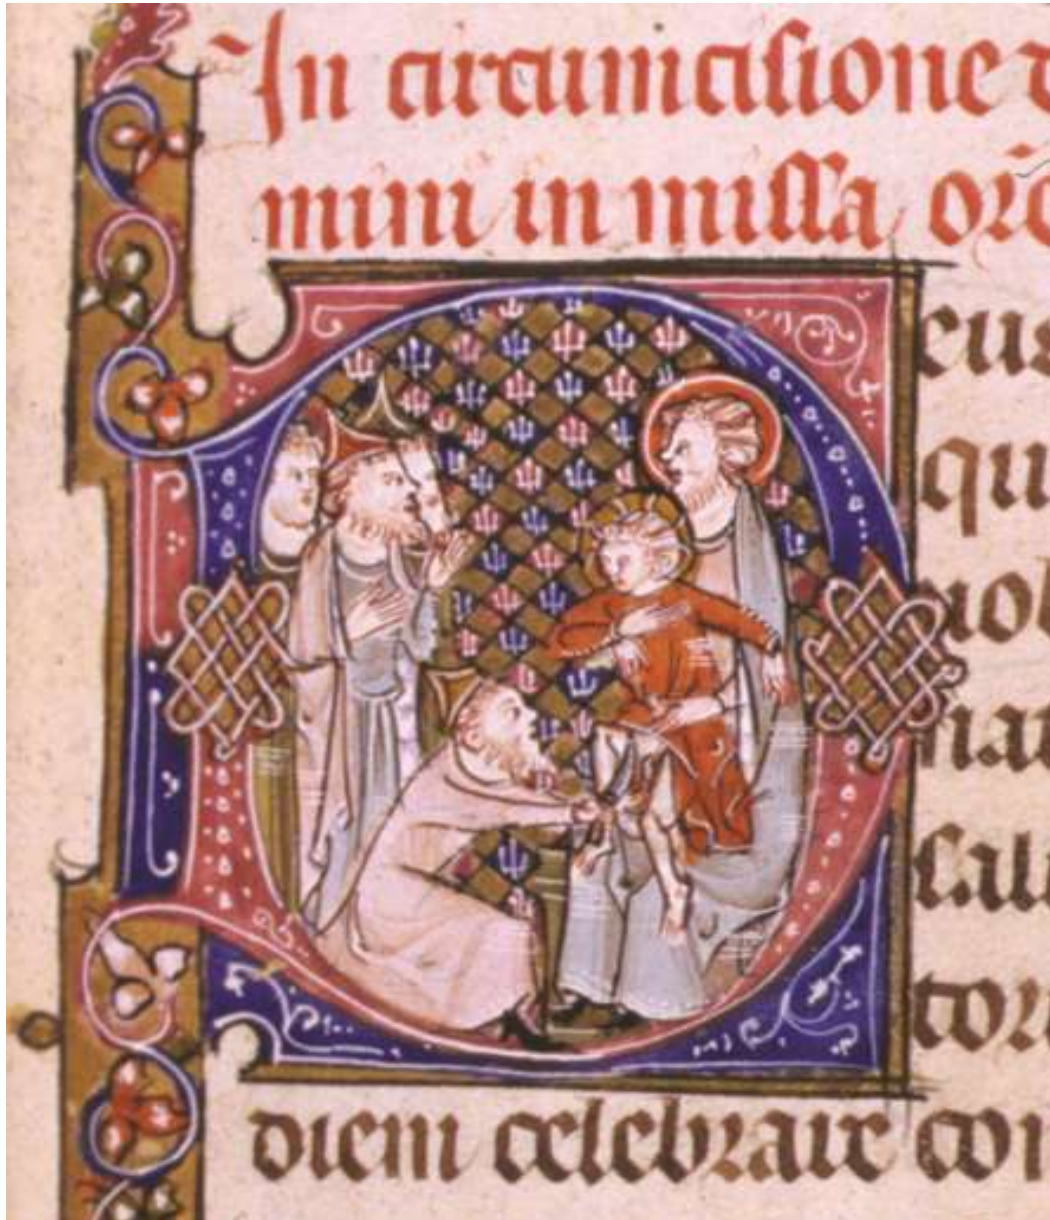 In circumcisione d
mini in missa or̄o
Deus
qu
nob
nat
salu
tor
diem celebrare con